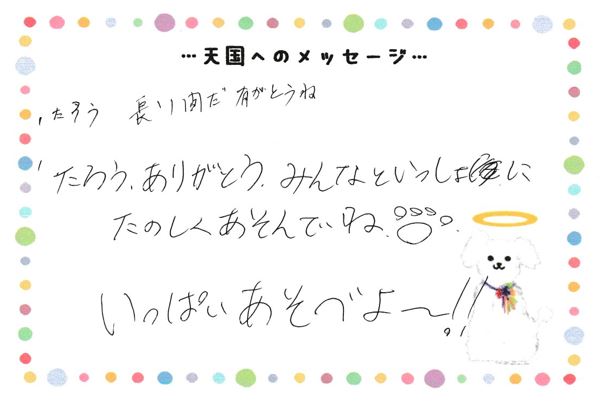 …天国へのメッセージ…
たろう 長い間だ 有がとうね
たろう、ありがとう、みんなといっしょに
たのしくあそんでいね
いっぱいあそべよ〜!!